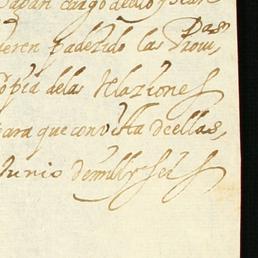 cargo dello
ueren padezido las Prouas
opia de las Relaziones
para que con vista de ellas,
Junio de mill y sei